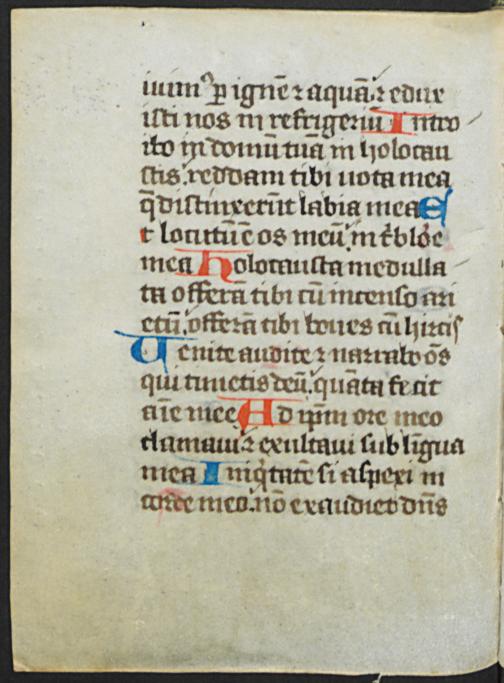 iuim⁹ ꝑ ignē ⁊ aquā ⁊ edux
isti nos in refrigeriū Intro
ibo in domū tuā in holocau
stis. reddam tibi uota mea
q̄ distinxerūt labia mea E
t locutū ē os meū. in t̄bl̄oe
mea Holocausta medulla
ta offerā tibi cū incenso ari
etū. offerā tibi boues cū hircis
Uenite audite ⁊ narrabo ōs
qui timetis deū. quāta fecit
aīe mee Ad ip̄m ore meo
clamaui ⁊ exultaui sub līgua
mea Iniq̇tatē si aspexi in
corde meo. nō exaudiet dn̄s